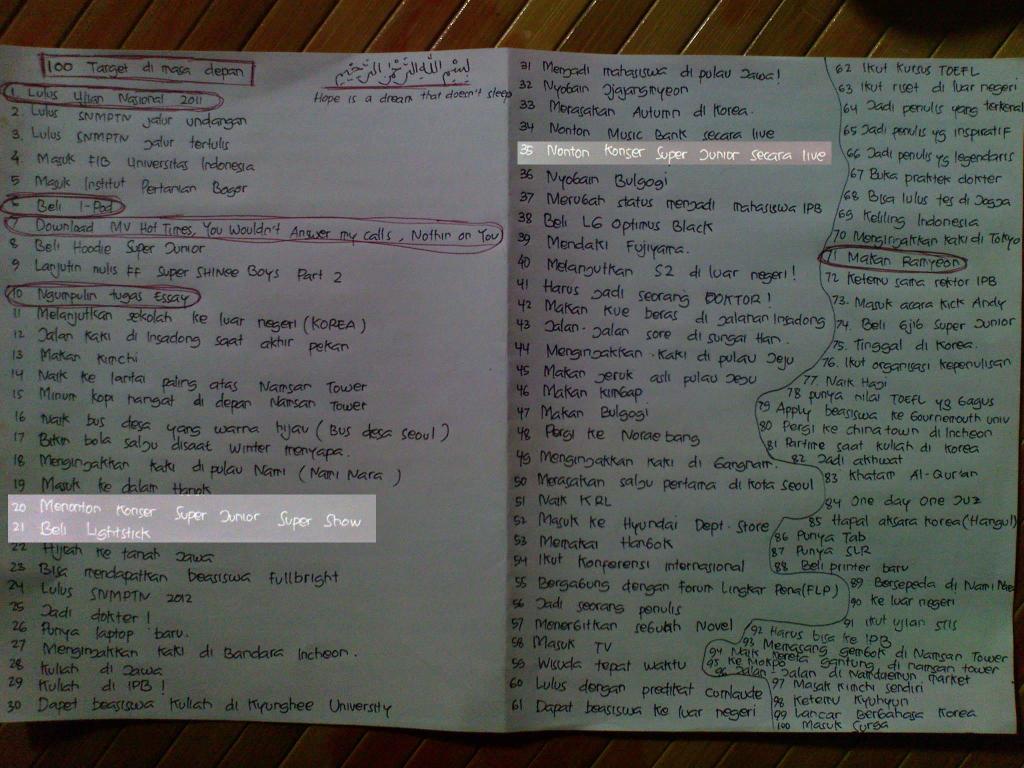 100 Target di masa depan
بسم الله الرحمن الرحيم
Hope is a dream that doesn't sleep
1. Lulus Ujian Nasional 2011
2. Lulus SNMPTN jalur undangan
3. Lulus SNMPTN jalur tertulis
4. Masuk FIB Universitas Indonesia
5 Masuk Institut Pertanian Bogor
6 Beli I-Pod
7 Download MV Hot Times, You Wouldn't Answer my calls, Nothin on You
8 Beli Hoodie Super Junior
9 Lanjutin nulis FF Super SHINee Boys Part 2
10 Ngumpulin tugas Essay
11 Melanjutkan sekolah ke luar negeri (KOREA)
12 Jalan kaki di Insadong saat akhir pekan
13 Makan kimchi
14 Naik ke lantai paling atas Namsan Tower
15 Minum kopi hangat di depan Namsan Tower
16 Naik bus desa yang warna hijau (Bus desa seoul)
17 Bikin bola salju disaat winter menyapa.
18 Menginjakkan kaki di pulau Nami (Nami Nara)
19 Masuk ke dalam Hanok
20 Menonton Konser Super Junior Super Show
21 Beli Lightstick
22 Hijrah ke tanah Jawa
23 Bisa mendapatkan beasiswa fullbright
24 Lulus SNMPTN 2012
25 Jadi dokter!
26 Punya laptop baru.
27 Menginjakkan kaki di Bandara Incheon.
28 Kuliah di Jawa
29 Kuliah di IPB!
30 Dapet beasiswa kuliah di Kyunghee University
31 Menjadi mahasiswa di pulau Jawa!
32 Nyobain Jjajangmyeon
33 Merasakan Autumn di Korea.
34 Nonton Music Bank secara live
35 Nonton Konser Super Junior secara live
36 Nyobain Bulgogi
37 Merubah status menjadi mahasiswa IPB
38 Beli LG Optimus Black
39 Mendaki Fujiyama.
40 Melanjutkan S2 di luar negeri!
41 Harus Jadi seorang DOKTOR!
42 Makan kue beras di Jalanan Insadong
43 Jalan-Jalan sore di sungai Han.
44 Menginjakkan kaki di pulau Jeju
45 Makan jeruk asli pulau Jeju
46 Makan kimbap
47 Makan Bulgogi
48 Pergi ke Norae bang
49 Menginjakkan kaki di Gangnam.
50 Merasakan salju pertama di kota seoul
51 Naik KRL
52 Masuk ke Hyundai Dept. Store
53 Memakai Hanbok
54 Ikut Konferensi internasional
55 Bergabung dengan forum Lingkar Pena (FLP)
56 Jadi seorang penulis
57 Menerbitkan sebuah Novel
58 Masuk TV
59 Wisuda tepat waktu
60 Lulus dengan predikat cumlaude
61 Dapat beasiswa ke luar negeri
62 Ikut Kursus TOEFL
63 Ikut riset di luar negeri
64 Jadi penulis yang terkenal
65 Jadi penulis yg inspiratif
66 Jadi penulis yg legendaris
67 Buka praktek dokter
68 Bisa lulus tes di Jogja
69 Keliling Indonesia
70 Menginjakkan kaki di Tokyo
71 Makan Ramyeon
72 Ketemu sama rektor IPB
73. Masuk acara Kick Andy
74. Beli Gjib Super Junior
75. Tinggal di Korea.
76. Ikut organisasi kepenulisan
77. Naik Haji
78 punya nilai TOEFL yg bagus
79 Apply beasiswa ke Bournemouth univ
80 Pergi ke china town di Incheon
81 Partime saat kuliah di Korea
82 Jadi akhwat
83 khatam Al-Qur'an
84 One day One Juz
85 Hapal aksara korea (Hangul)
86 Punya Tab
87 Punya SLR
88 Beli printer baru
89 Bersepeda di Nami Nara
90 ke luar negeri
91 Ikut ujian STIS
92 Harus bisa ke IPB
93 Memasang gembok di Namsan Tower
94 Naik kereta gantung di namsan tower
95 ke Mokpo
96 Jalan-Jalan di Namdaemun market
97 Masak kimchi sendiri
98 Ketemu Kyuhyun
99 Lancar Berbahasa Korea
100 Masuk Surga